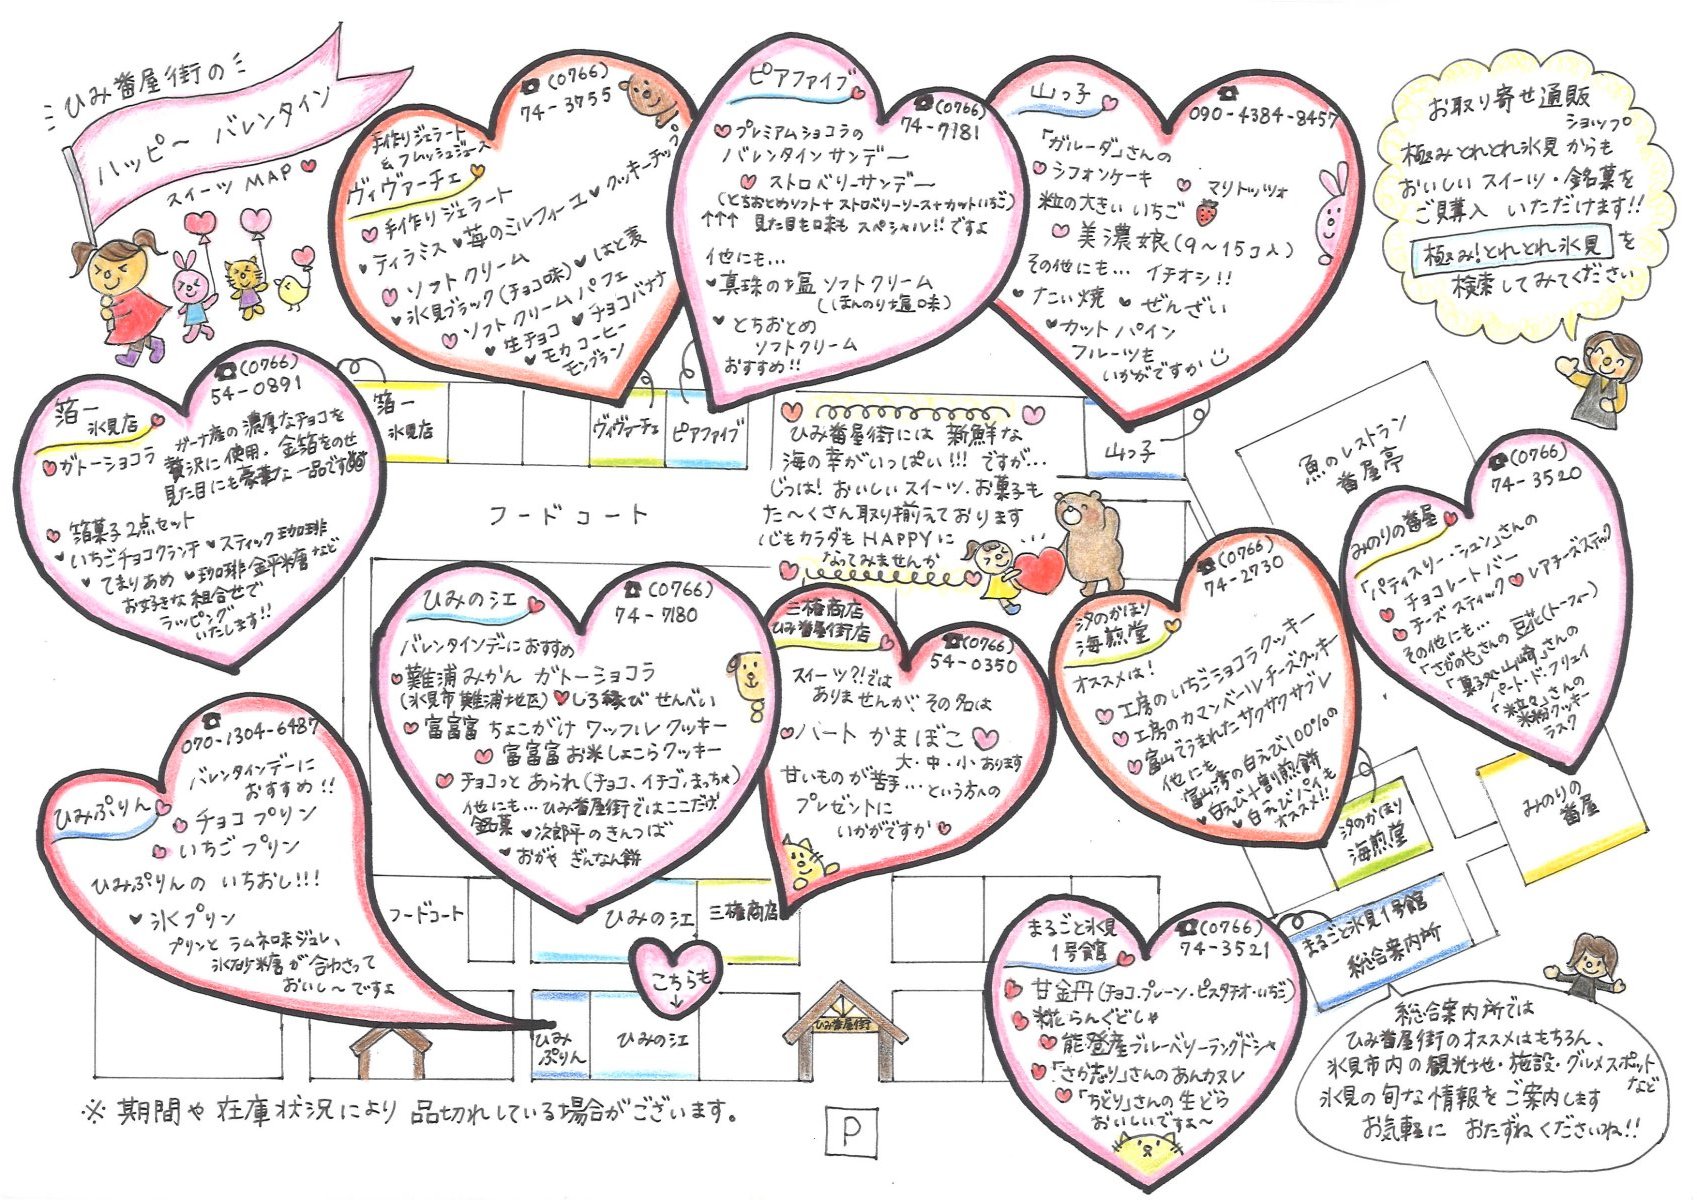 ひみ番屋街の
ハッピ～ バレンタイン
スイーツ MAP
☎(0766)
74-3755
手作りジェラート
& フレッシュジュース
ヴィヴァーチェ
手作りジェラート
ティラミス 苺のミルフィーユ クッキーチップ
ソフトクリーム
氷見ブラック(チョコ味) はと麦
ソフトクリームパフェ
生チョコ チョコバナナ
モカコーヒー
モンブラン
ピアファイブ
☎(0766)
74-7181
プレミアムショコラの
バレンタインサンデー
ストロベリーサンデー
(とちおとめソフト+ストロベリーソース+カットいちご)
↑↑↑ 見た目も味も スペシャル!!ですよ
他にも…
真珠の塩 ソフトクリーム
(ほんのり塩味)
とちおとめ
ソフトクリーム
おすすめ!!
山っ子
☎
090-4384-8457
「ガルーダ」さんの
シフォンケーキ マリトッツォ
粒の大きい いちご
美濃娘(9～15コ入)
その他にも… イチオシ!!
たい焼 ぜんざい
カットパイン
フルーツも
いかがですか
お取り寄せ通販
ショップ
極みとれとれ氷見 からも
おいしい スイーツ・銘菓を
ご購入 いただけます!!
極み!とれとれ氷見 を
検索してみてください
箔一
氷見店
☎(0766)
54-0891
ガトーショコラ
ガーナ産の濃厚なチョコを
贅沢に使用。金箔をのせ
見た目にも豪華な一品です
箔菓子2点セット
いちごチョコクランチ スティック珈琲
てまりあめ 珈琲金平糖など
お好きな組合せで
ラッピング
いたします!!
箔一
氷見店
ヴィヴァーチェ
ピアファイブ
山っ子
フードコート
ひみ番屋街には 新鮮な
海の幸がいっぱい!!! ですが…
じつは! おいしいスイーツ、お菓子も
た～くさん取り揃えております
心もカラダもHAPPYに
なってみませんか
魚のレストラン
番屋亭
みのりの番屋
☎(0766)
74-3520
「パティスリー・シュン」さんの
チョコレートバー
チーズスティック レアチーズスティック
その他にも…
「さがのや」さんの豆花(トーファー)
「菓子処山崎」さんの
パート・ド・フリュイ
「粒々」さんの
米粉クッキー
ラスク
ひみの江
☎(0766)
74-7180
バレンタインデーにおすすめ
灘浦みかん ガトーショコラ
(氷見市灘浦地区) しろ縁び せんべい
富富富 ちょこがけ ワッフルクッキー
富富富お米しょこらクッキー
チョコっと あられ(チョコ、イチゴ、まっちゃ)
他にも… ひみ番屋街ではここだけ
銘菓 次郎平のきんつば
おがや ぎんなん餅
三権商店
ひみ番屋街店
☎(0766)
54-0350
スイーツ?!では
ありませんが、その名は
ハート かまぼこ
大・中・小 あります
甘いものが苦手… という方への
プレゼントに
いかがですか
汐のかほり
海煎堂
☎(0766)
74-2730
オススメは!
工房のいちごショコラクッキー
工房のカマンベールチーズクッキー
富山でうまれたサクサクサブレ
他にも
富山湾の白えび100%の
白えび十割煎餅
白えびパイも
オススメ!!
☎
070-1304-6487
ひみぷりん
バレンタインデーに
おすすめ!!
チョコプリン
いちごプリン
ひみぷりんの いちおし!!!
氷くプリン
プリンと ラムネ味ジュレ、
氷砂糖が 合わさって
おいし～ですよ
フードコート
ひみの江
三権商店
こちらも
↓
ひみ
ぷりん
ひみの江
ひみ番屋街
汐のかほり
海煎堂
みのりの
番屋
まるごと氷見1号館
総合案内所
まるごと氷見
1号館
☎(0766)
74-3521
甘金丹(チョコ・プレーン・ピスタチオ・いちご)
糀らんぐどしゃ
能登産ブルーベリーラングドシャ
「さかえり」さんのあんカヌレ
「ちどり」さんの生どら
おいしいですよ～
総合案内所では
ひみ番屋街のオススメはもちろん、
氷見市内の観光地・施設・グルメスポット
など
氷見の旬な情報をご案内します
お気軽に おたずねくださいね!!
※期間や在庫状況により 品切れしている場合がございます。
P